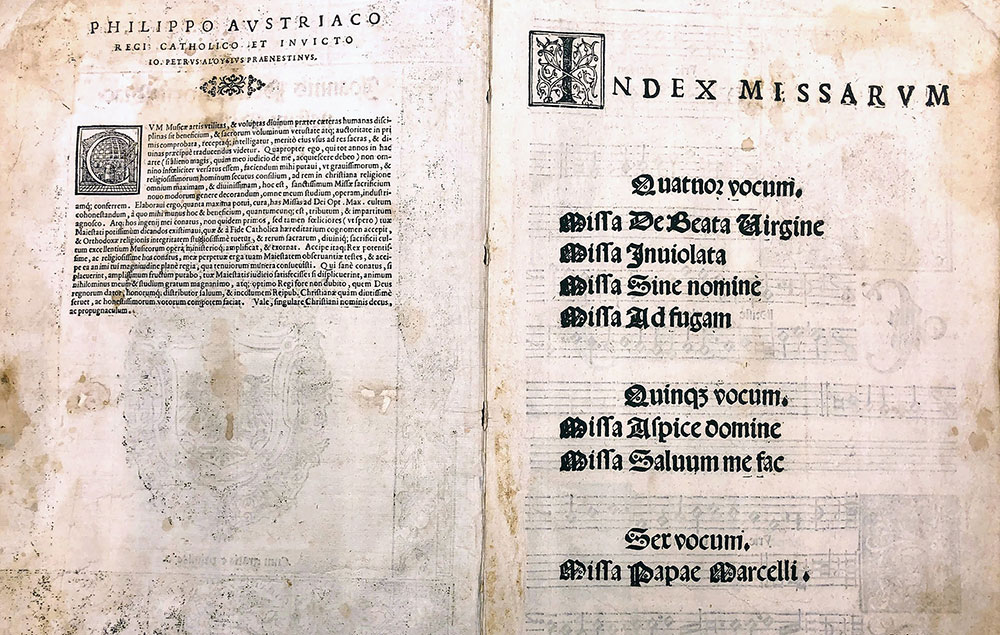 PHILIPPO AVSTRIACO
REGI CATHOLICO ET INVICTO
IO. PETRVS ALOYSIVS PRAENESTINVS.
CVM Musicæ artis vtilitas, & voluptas diuinum præter cæteras humanas disci
plinas sit beneficium, & sacrorum voluminum vetustate atq; auctoritate in pri
mis comprobata, receptaq; intelligatur, meritò eius vsus ad res sacras, & di-
uinas præcipuè traducendus videtur. Quapropter ego, qui tot annos in hac
arte (si alieno magis, quàm meo iudicio de me, acquiescere debeo) non om-
nino infœliciter versatus essem, faciendum mihi putaui, vt grauissimorum, &
religiosissimorum hominum secutus consilium, ad rem in christiana religione
omnium maximam, & diuinissimam, hoc est, sanctissimum Missæ sacrificium
nouo modorum genere decorandum, omne meum studium, operam, industri-
amq; conferrem. Elaboraui ergo, quanta maxima potui, cura, has Missas ad Dei Opt. Max. cultum
cohonestandum, à quo mihi munus hoc & beneficium, quantumcunq; est, tributum, & impartitum
agnosco. Atq; hos ingenij mei conatus, non quidem primos, sed tamen fœliciores (vt spero) tuæ
Maiestati potissimùm dicandos existimaui, quæ & à Fide Catholica hæreditarium cognomen accepit,
& Orthodoxæ religionis integritatem studiosissimè tuetur, & rerum sacrarum, diuiniq; sacrificij cul-
tum excellentium Musicorum opera, ministerioq; amplificat, & exornat. Accipe itaq; Rex potentis-
sime, ac religiosissime hos conatus, meæ perpetuæ erga tuam Maiestatem obseruantiæ testes, & acci-
pe ea animi tui magnitudine planè regia, qua tenuiorum munera consueuisti. Qui sanè conatus, si
placuerint, amplissimum fructum putabo, tuæ Maiestatis iudicio satisfecisse; si displicuerint, animum
nihilominus meum & studium gratum magnanimo, atq; optimo Regi fore non dubito, quem Deus
regnorum dator, honorumq; distributor saluum, & incolumem Reipub. Christianæ quàm diutissimè
seruet, ac honestissimorum votorum compotem faciat. Vale, singulare Christiani nominis decus,
ac propugnaculum.
INDEX MISSARVM
Quatuor vocum.
Missa De Beata Uirgine
Missa Inuiolata
Missa Sine nomine
Missa Ad fugam
Quinqz vocum.
Missa Aspice domine
Missa Saluum me fac
Sex vocum.
Missa Papae Marcelli.